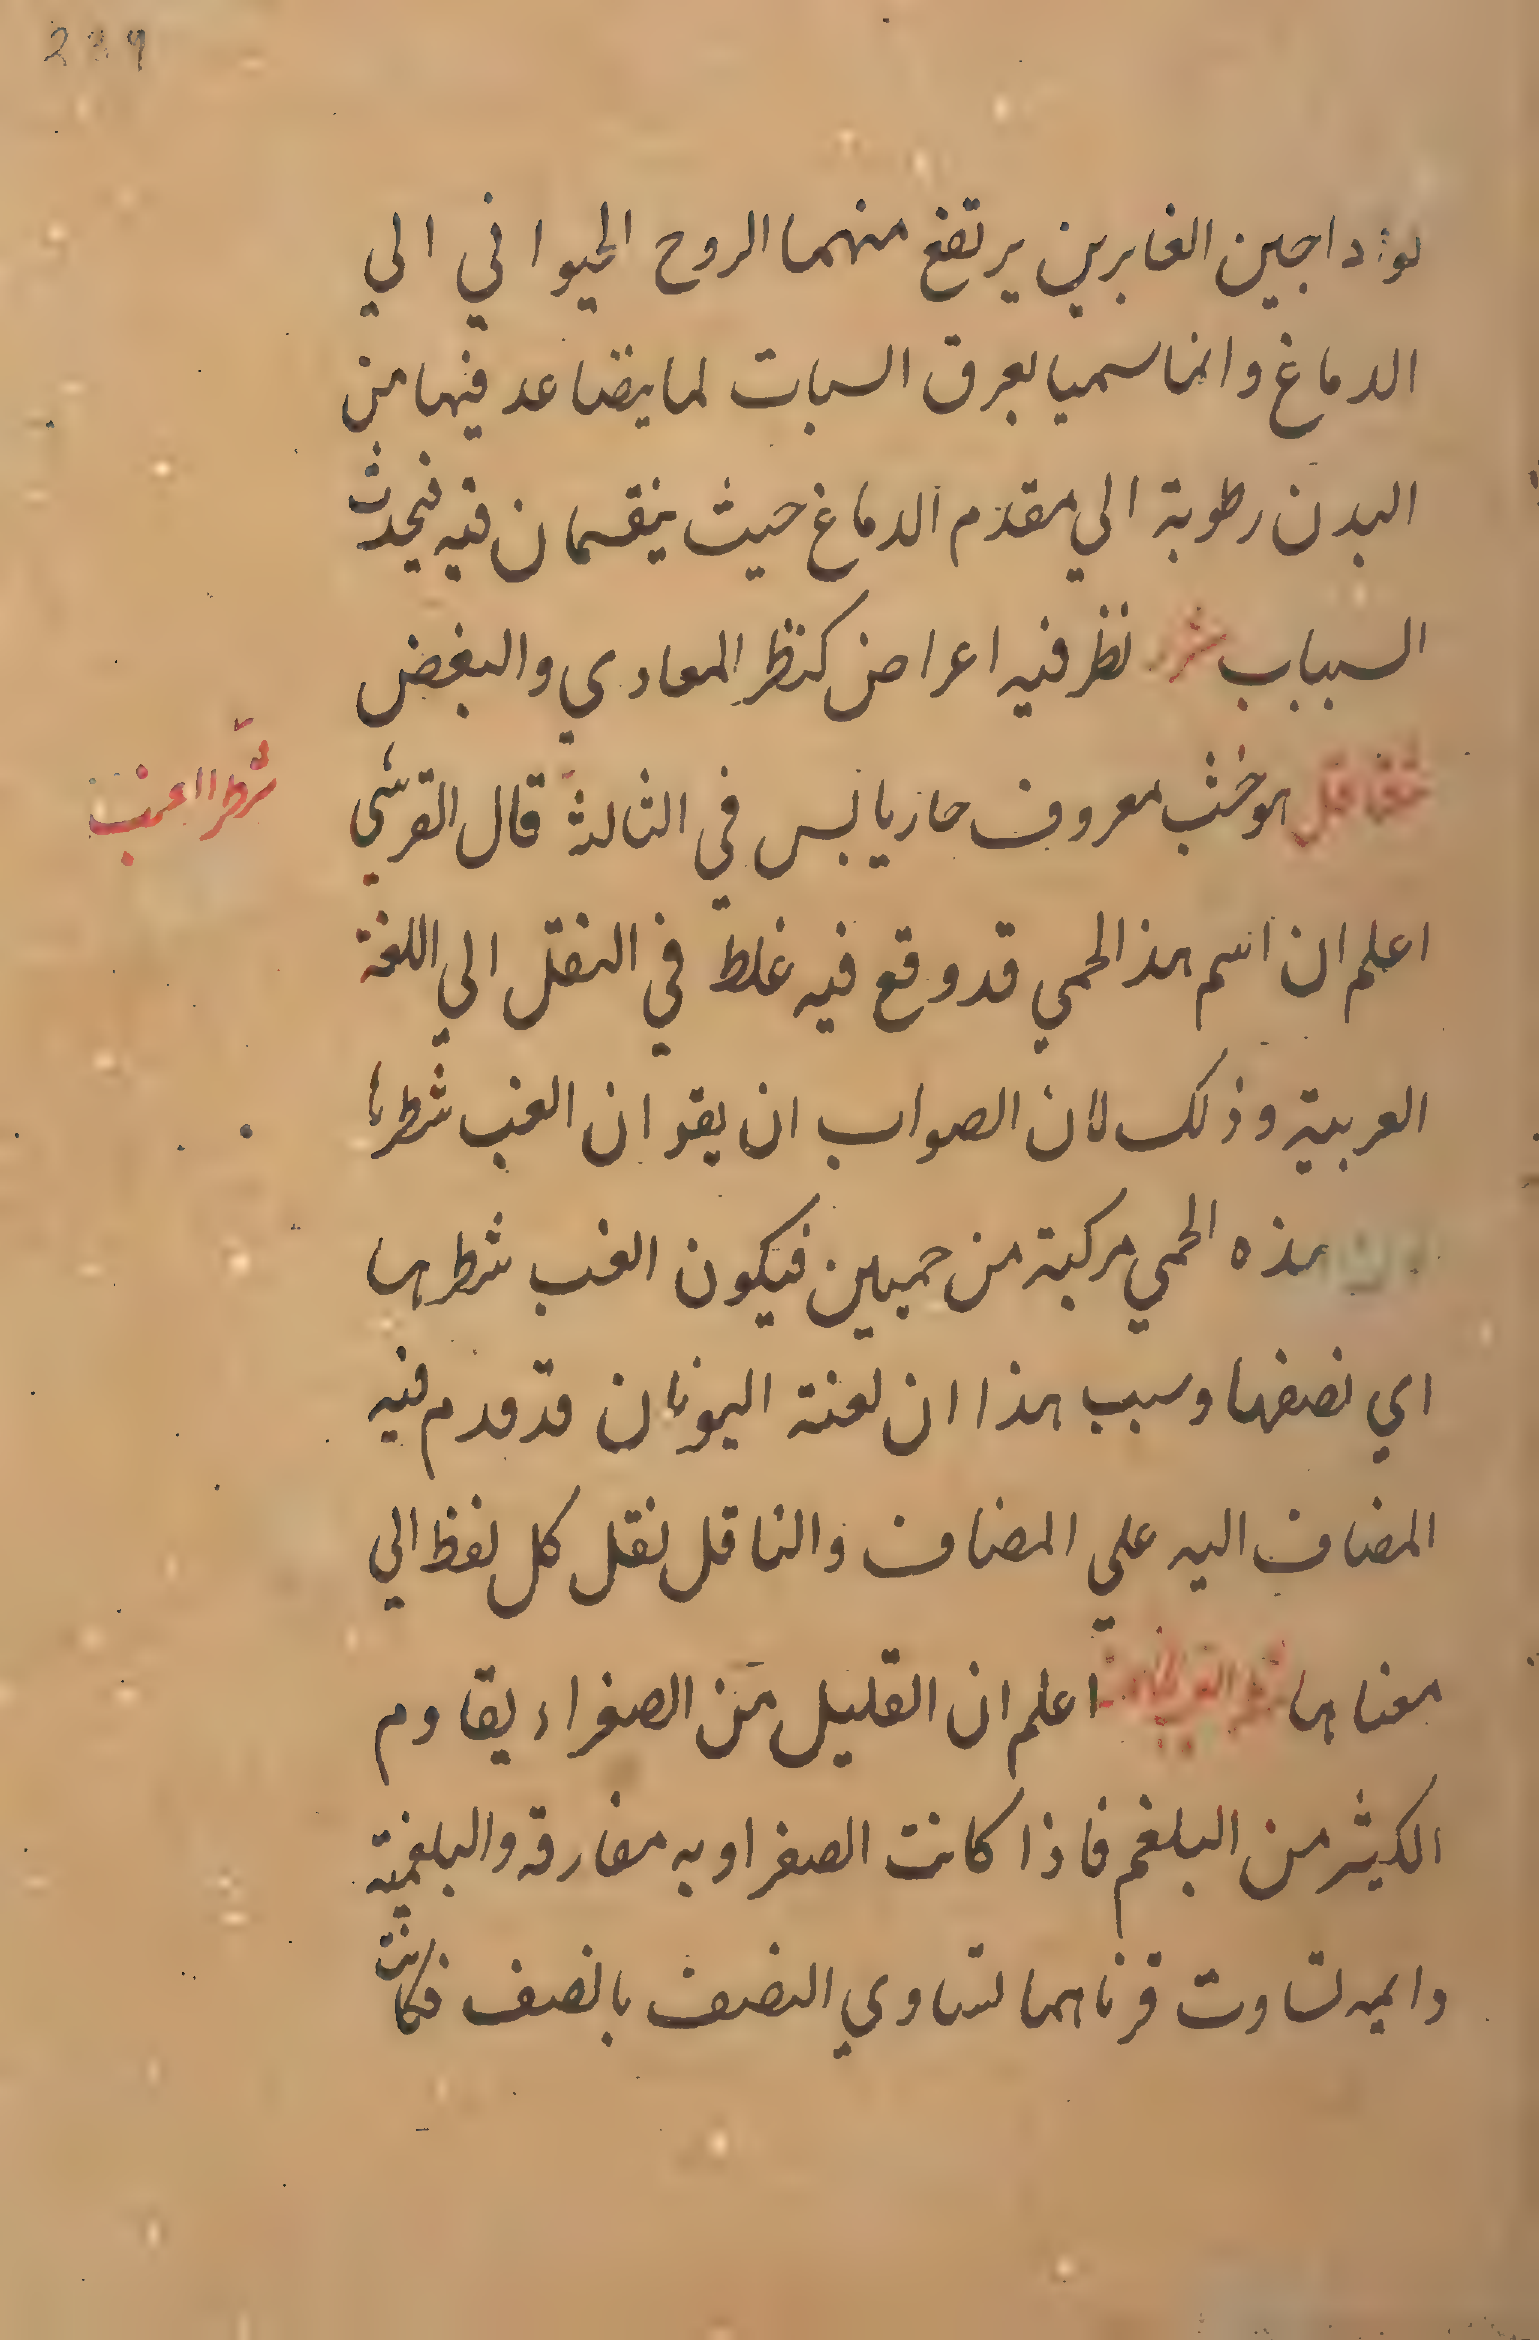 239
داجين الغابرين يرتفع منهما الروح الحيواني الي
الدماغ وانما سميا بعرق السبات لما يتصاعد فيها من
البدن رطوبة الي مقدم الدماغ حيث ينقسمان فيه فيحدث
السباب شزر نظر فيه اعراض كنظر المعادي والبغض
هو خشب معروف حار يابس في الثالثة قال القرشي
شطر الغب
اعلم ان اسم هذ الحمي قد وقع فيه غلط في النقل الي اللغة
العربية وذلك لان الصواب ان يقو ان الغب شطرها
هذه الحمي مركبة من حميين فيكون الغب شطرها
اي نصفها وسبب هذا ان لغة اليونان قد قدم فيه
المضاف اليه علي المضاف والناقل نقل كل لفظ الي
معناها اعلم ان القليل من الصفراء يقاوم
الكثير من البلغم فاذا كانت الصفراويه مفارقه والبلغمية
دايمه تساوت قرناهما لتساوي النصف بالنصف فكانت